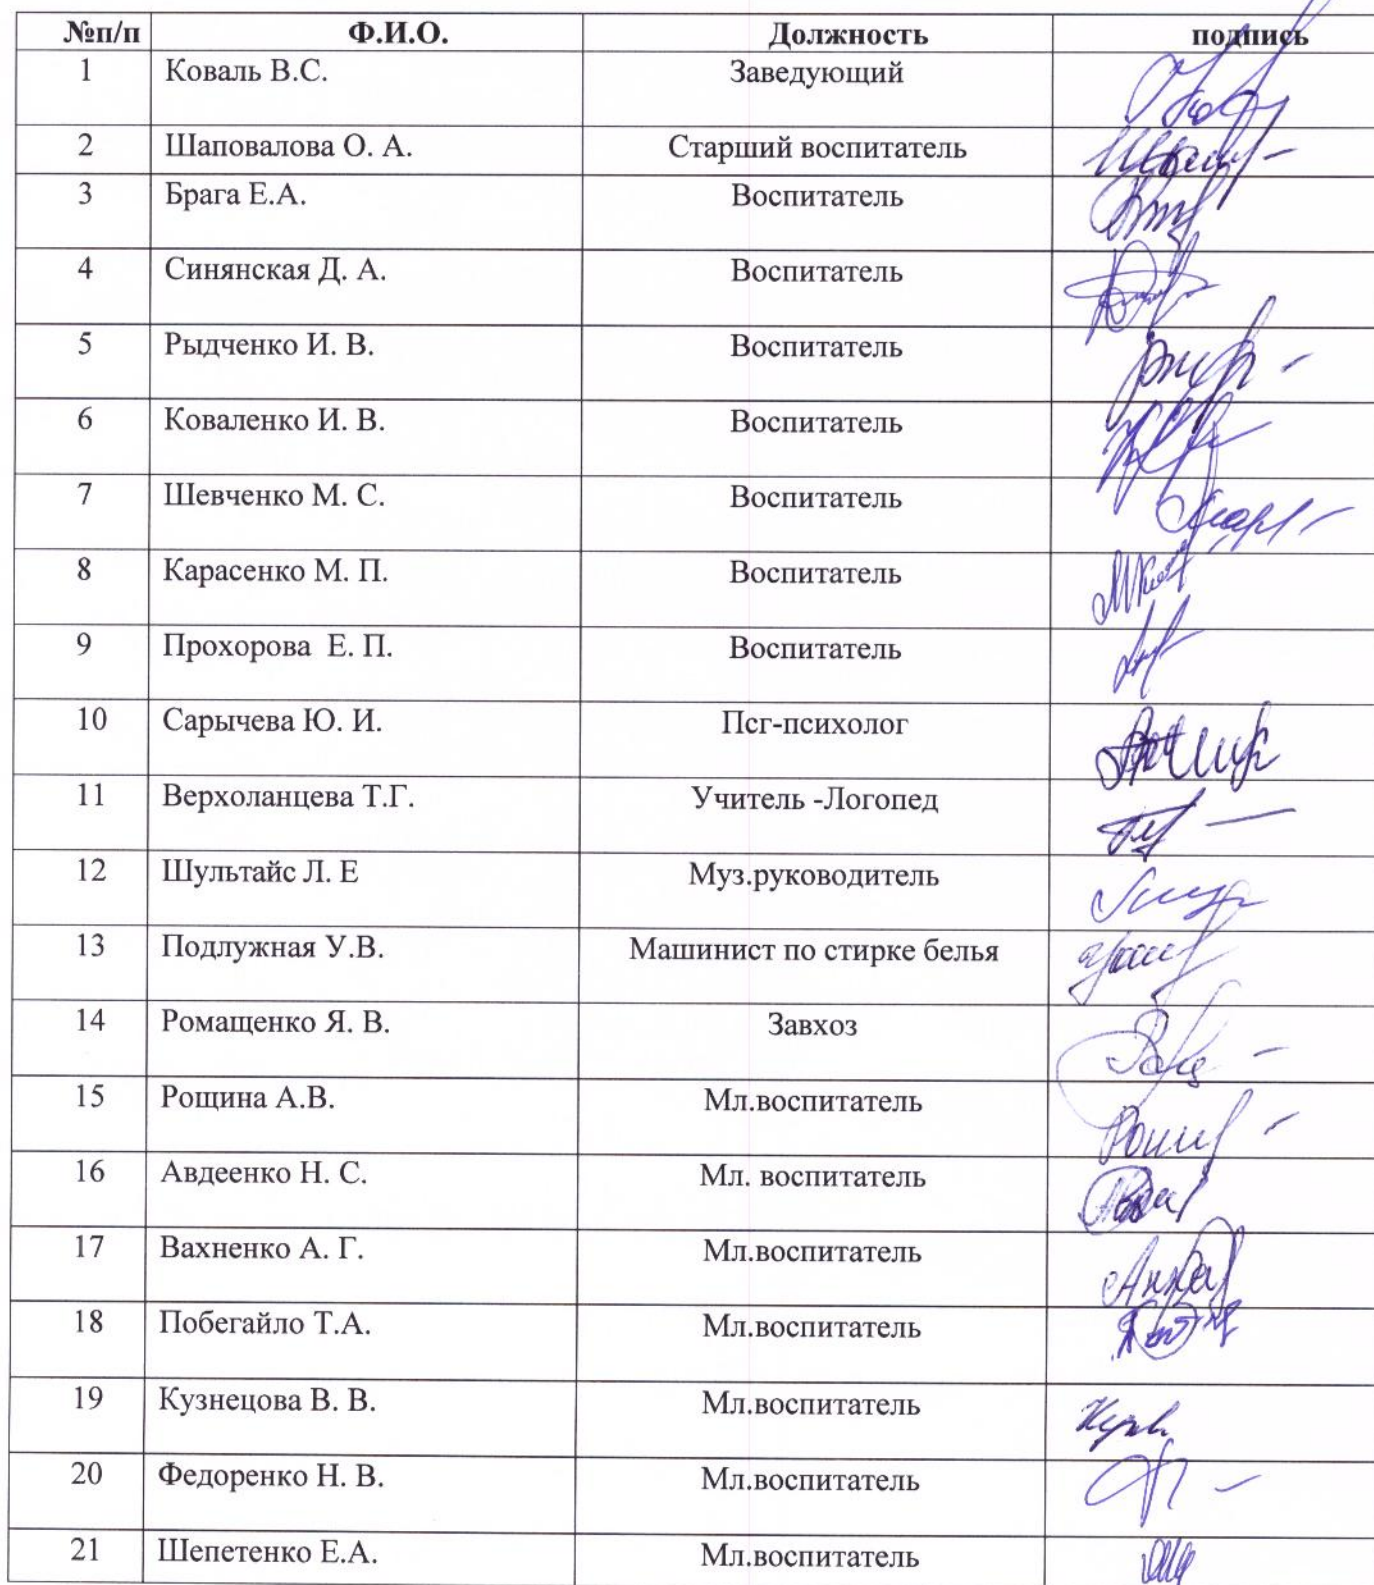 №п/п Ф.И.О. Должность подпись
1 Коваль В.С. Заведующий
2 Шаповалова О. А. Старший воспитатель
3 Брага Е.А. Воспитатель
4 Синянская Д. А. Воспитатель
5 Рыдченко И. В. Воспитатель
6 Коваленко И. В. Воспитатель
7 Шевченко М. С. Воспитатель
8 Карасенко М. П. Воспитатель
9 Прохорова Е. П. Воспитатель
10 Сарычева Ю. И. Псг-психолог
11 Верхоланцева Т.Г. Учитель -Логопед
12 Шультайс Л. Е Муз.руководитель
13 Подлужная У.В. Машинист по стирке белья
14 Ромащенко Я. В. Завхоз
15 Рощина А.В. Мл.воспитатель
16 Авдеенко Н. С. Мл. воспитатель
17 Вахненко А. Г. Мл.воспитатель
18 Побегайло Т.А. Мл.воспитатель
19 Кузнецова В. В. Мл.воспитатель
20 Федоренко Н. В. Мл.воспитатель
21 Шепетенко Е.А. Мл.воспитатель